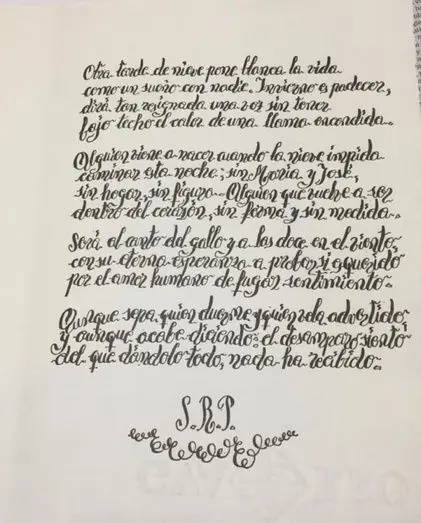 Otra tarde de nieve pone blanca la vida
como un sueño con nadie. Invierno es padecer,
dirá tan resignada una voz sin tener
bajo techo el calor de una llama encendida.
Alguien viene a nacer cuando la nieve impida
caminar esta noche; sin María y José,
sin hogar, sin figura. Alguien que vuelve a ser
dentro del corazón, sin forma y sin medida.
Será al canto del gallo y a las doce en el viento,
con su eterna esperanza a probar si es querido
por el amor humano de fugaz sentimiento.
Aunque sepa quien duerme y quien vela advertido
y aunque acabe diciendo: el desamparo siento
del que dándolo todo, nada ha recibido.
S.R.P.